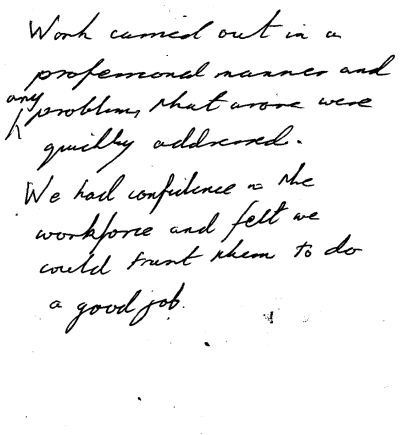 Work carried out in a
professional manner and
any problems that arose were
quickly addressed.
We had confidence in the
workforce and felt we
could trust them to do
a good job.